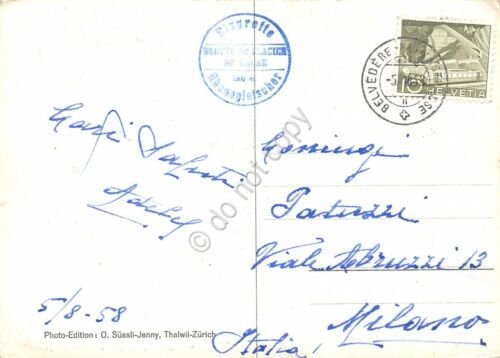 Eisgrotte
GROTTE DU GLACIER
DU RHONE
Rhonegletscher
10
HELVETIA
BELVÉDÈRE
Cari Saluti
Adele
5/8-58
Patuzzi
Viale Abruzzi 13
Milano
Italia
Photo-Edition : O. Süssli-Jenny, Thalwil-Zürich
do not copy